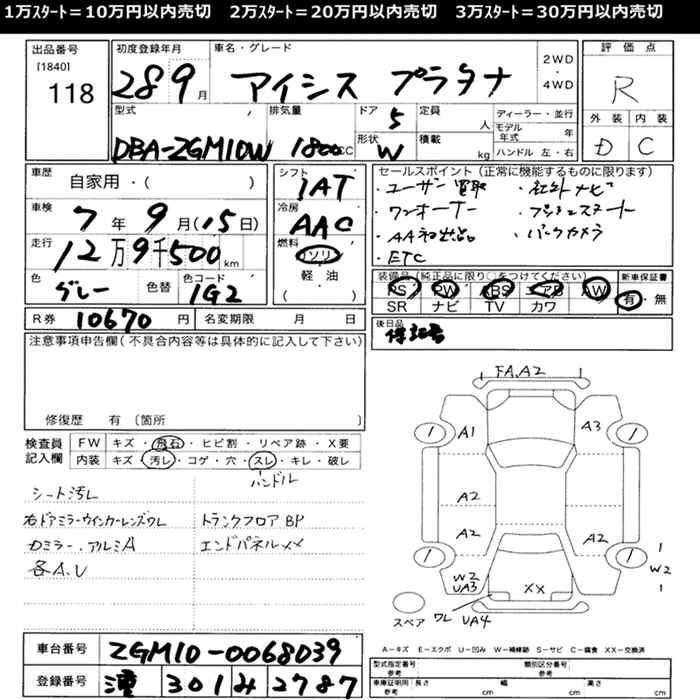 1万ｽﾀｰﾄ＝10万円以内売切　2万ｽﾀｰﾄ＝20万円以内売切　3万ｽﾀｰﾄ＝30万円以内売切
出品番号
[1840]
118
初度登録年月
28 9月
車名・グレード
アイシス プラタナ
2WD
・
4WD
評価点
R
外装 内装
D C
型式
DBA-ZGM10W
排気量
1800cc
ドア 5
形状 W
定員 人
積載 kg
ディーラー・並行
モデル年式 年
ハンドル 左・右
車歴
自家用・( )
車検
7年9月(15日)
走行
12万9千500km
色
グレー
色替
色コード
1G2
シフト
IAT
冷房
AAC
燃料
ガソリン
軽・油
( )
セールスポイント (正常に機能するものに限ります)
・ユーザー買取 ・社外ナビ
・ワンオーナー ・プッシュスタート
・AA初出品 ・バックカメラ
・ETC
装備品(純正品に限り○をつけてください)
PS PW ABS エアB AW
SR ナビ TV カワ
新車保証書
有・無
R券 10670円
名変期限 月 日
後日品
保証書
注意事項申告欄(不具合内容等は具体的に記入して下さい)
修復歴 有 〔箇所
検査員
記入欄
FW キズ・飛石・ヒビ割・リペア跡・X要
内装 キズ・汚レ・コゲ・穴・スレ・キレ・破レ
ハンドル
シート汚レ
右ドアミラーウインカーレンズワレ
トランクフロアBP
ロミラー.アルミA
エンドパネルXX
各A.U
FA.A2
1 A1 A3 1
A2
A2 A2
1 1
W2
UA3
XX
W2
スペア ワレ UA4
A−キズ E−エクボ U−凹み W−補修跡 S−サビ C−腐食 XX−交換済
車台番号
ZGM10-0068039
登録番号
301 み 2787
型式指定番号 類別区分番号
参考 参考
車庫証明用 長さ 幅 高さ
参考 cm cm cm